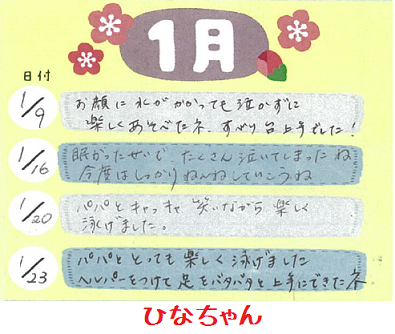 1月
日付
1/9
お顔に水がかかっても泣かずに
楽しくあそべたネ。すべり台上手でした！
1/16
眠かったせいで、たくさん泣いてしまったね
今度はしっかりねんねしていこうね
1/20
パパとキャッキャ笑いながら楽しく
泳げました。
1/23
パパととっても楽しく泳げました
ヘルパーをつけて足をバタバタと上手にできたネ
ひなちゃん